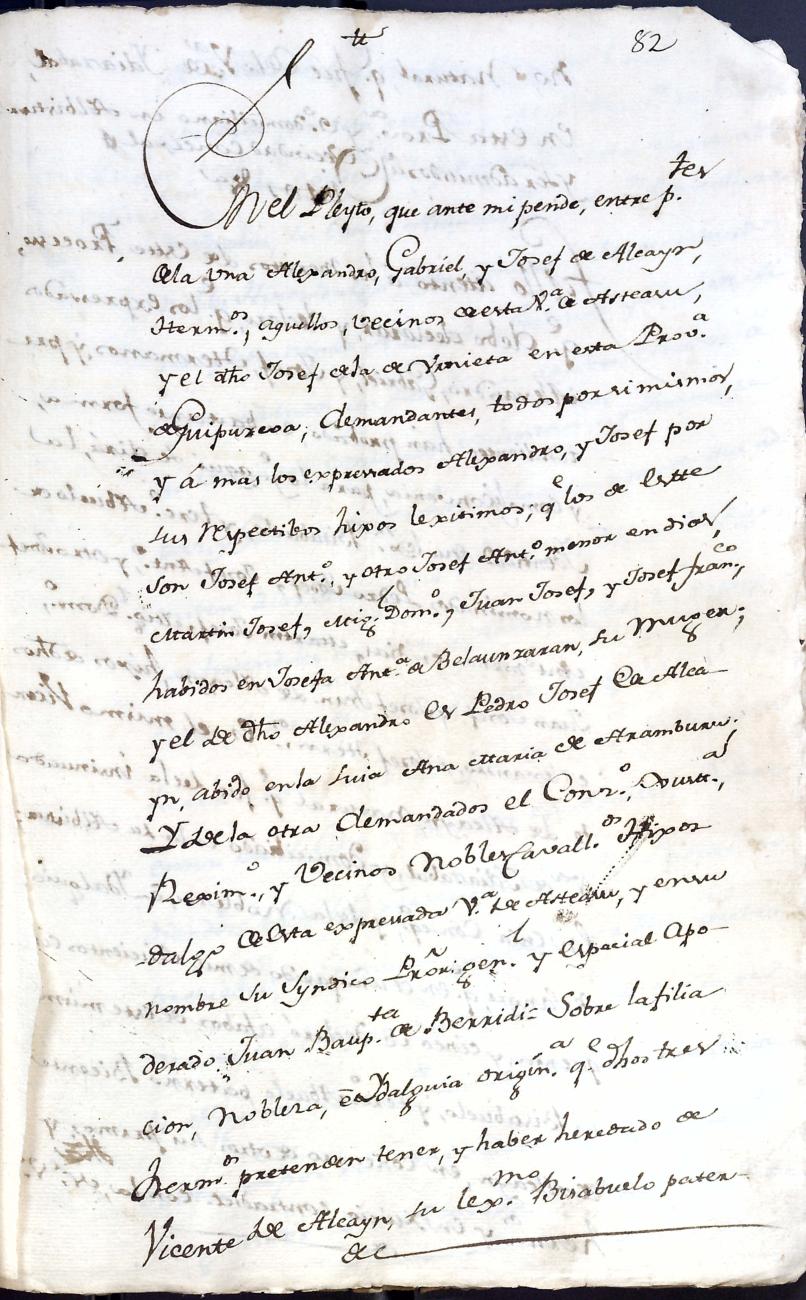 82
En el Pleyto, que ante mi pende, entre p.tes
de la una Alexandro, Gabriel, y Josef de Alcayn,
Herm.os, aquellos, vecinos de esta V.a de Asteasu,
y el dho Josef de la de Urnieta en esta Prov.a
de Guipuzcoa, Demandantes, todos por si mismos,
y á mas los expresados Alexandro, y Josef por
sus respectibos hixos lexitimos; q.e los de este
son Josef Ant.o, y otro Josef Ant.o menor en dias,
Martin Josef, Mig.l Dom.o, Juan Josef, y Josef fran.co,
habidos en Josefa Ant.a de Belaunzaran, su Muger;
y el de dho Alexandro es Pedro Josef de Alca
yn, abido en la suia Ana Maria de Aramburu.
Y de la otra Demandados el Conz.o, Justt.a,
Rexim.o, y Vecinos Nobles Cavall.os Hixos
dalgo de esta expresada V.a de Asteasu, y en su
nombre su Syndico Pror. gen.l y Espacial Apo-
derado Juan Baup.ta de Berridi= Sobre la filia
cion, Nobleza, e Ydalguia origin.a q.e dhos tres
herm.os pretenden tener, y haber heredado de
Vicente de Alcayn, su lex.mo Bisabuelo pater-
&c